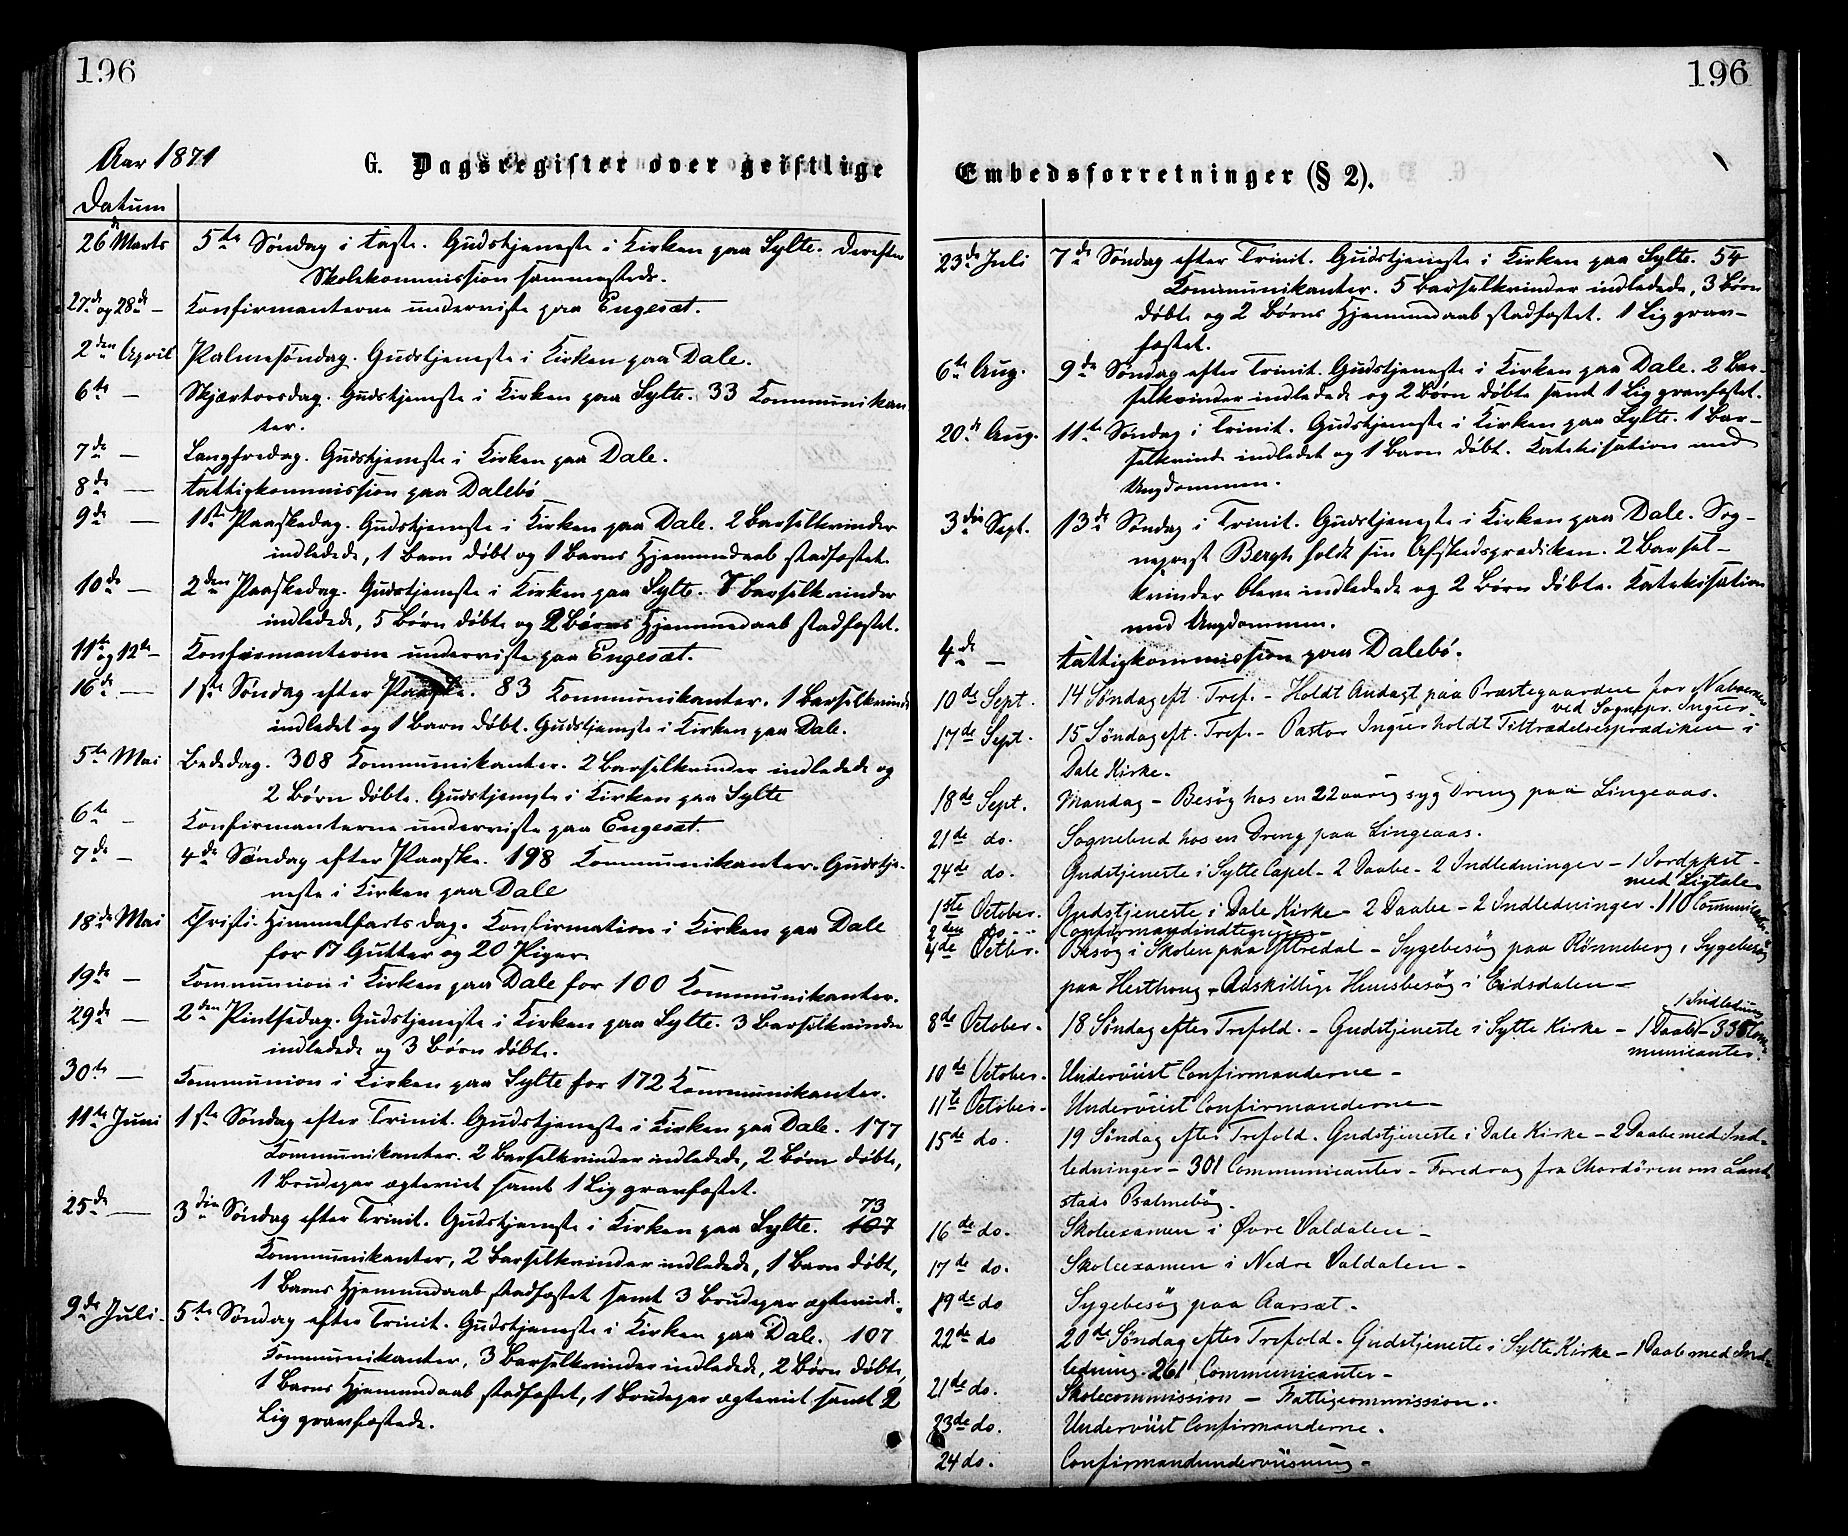 196
Aar 1871
G. Dagsregister over geistlige
Datum
26 Marts 5te Søndag i Faste. Gudstjeneste i Kirken paa Sylte. Derefter
Skolekommission sammesteds.
27de og 28de — Konfirmanterne underviste paa Engesæt.
2den April Palmesøndag. Gudstjeneste i Kirken paa Dale.
6te — Skjærtorsdag. Gudstjeneste i Kirken paa Sylte. 33 Kommunikan
ter.
7de — Langfredag. Gudstjeneste i Kirken paa Dale.
8de — Fattigkommission paa Dalebø
9de — 1ste Paaskedag. Gudstjeneste i Kirken paa Dale. 2 Barselkvinder
indledede, 1 Barn døbt og 1 Barns Hjemmedaab stadfæstet.
10de — 2den Paaskedag. Gudstjeneste i Kirken paa Sylte. 7 Barselkvinder
indledede, 5 Børn døbte og 2 Børns Hjemmedaab stadfæstet.
11te og 12te — Konfirmanterne underviste paa Engesæt.
16de — 1ste Søndag efter Paaske. 83 Kommunikanter. 1 Barselkvinde
indledet og 1 Barn døbt. Gudstjeneste i Kirken paa Dale.
5te Mai Bededag. 308 Kommunikanter. 2 Barselkvinder indledede og
2 Børn døbte. Gudstjeneste i Kirken paa Sylte
6te — Konfirmanterne underviste paa Engesæt.
7de — 4de Søndag efter Paaske. 198 Kommunikanter. Gudstje-
neste i Kirken paa Dale
18de Mai Christi Himmelfarts dag. Konfirmation i Kirken paa Dale
for 17 Gutter og 20 Piger.
19de — Kommunion i Kirken paa Dale for 100 Kommunikanter.
29de — 2den Pintsedag. Gudstjeneste i Kirken paa Sylte. 3 Barselkvinder
indledede og 3 Børn døbte.
30te — Kommunion i Kirken paa Sylte for 172 Kommunikanter.
11te Juni 1ste Søndag efter Trinit. Gudstjeneste i Kirken paa Dale. 177
Kommunikanter. 2 Barselkvinder indledede, 2 Børn døbte,
1 Brudepar ægteviet samt 1 Lig gravfæstet.
73
25de — 3die Søndag efter Trinit. Gudstjeneste i Kirken paa Sylte. 107
Kommunikanter, 2 Barselkvinder indledede, 1 Barn døbt,
1 Barns Hjemmedaab stadfæstet samt 3 Brudepar ægteviede.
9de Juli. 5te Søndag efter Trinit. Gudstjeneste i Kirken paa Dale. 107
Kommunikanter, 3 Barselkvinder indledede, 2 Børn døbte,
1 Barns Hjemmedaab stadfæstet, 1 Brudepar ægteviet samt 2
Lig gravfæstede.
196
Embedsforretninger (§ 2).
23de Juli 7de Søndag efter Trinit. Gudstjeneste i Kirken paa Sylte. 54
Kommunikanter. 5 Barselkvinder indledede, 3 Børn
døbte og 2 Børns Hjemmedaab stadfæstet. 1 Lig grav-
fæstet.
6te Aug. 9de Søndag efter Trinit. Gudstjeneste i Kirken paa Dale. 2 Bar-
selkvinder indledede og 2 Børn døbte samt 1 Lig gravfæstet.
20de Aug. 11te Søndag i Trinit. Gudstjeneste i Kirken paa Sylte. 1 Bar-
selkvinde indledet og 1 Barn døbt. Katekisation med
Ungdommen.
3die Sept. 13de Søndag i Trinit. Gudstjeneste i Kirken paa Dale. Sog-
neprest Bergh holdt sin Afskedsprædiken. 2 Barsel-
kvinder bleve indledede og 2 Børn døbte. Katekisation
med Ungdommen.
4de — Fattigkommission paa Dalebø.
10de Sept. 14 Søndag eft. Tref. - Holdt Andagt paa Præstegaarden for Naboerne
ved Sognepr. Ingier.
17de Sept. 15 Søndag eft. Tref. - Pastor Ingier holdt Tiltrædelsesprædiken i
Dale Kirke.
18de Sept. Mandag - Besøg hos en 22 aarig syg Dreng paa Lingeaas.
21de do. Sognebud hos en Dreng paa Lingeaas.
24de do. Gudstjeneste i Sylte Capel - 2 Daabe - 2 Indledninger - 1 Jordpkst -
med Ligtale
1ste October. Gudstjeneste i Dale Kirke - 2 Daabe - 2 Indledninger - 110 Communicanter
2den do - - Confirmandindtegning -
4de Octbr. Besøg i Skolen paa Yttredal - Sygebesøg paa Rønneberg, Sygebesøg
paa Hesthoug - Adskillige Huusbesøg i Eidsdalen -
1 Indledning
8de October - 18 Søndag efter Trefold. - Gudstjeneste i Sylte Kirke - 1 Daab - 335 Com-
municanter.
10de October. Underviist Confirmanderne -
11te October - Underviist Confirmanderne -
15de do. 19 Søndag efter Trefold. Gudstjeneste i Dale Kirke - 2 Daabe med Ind-
ledninger - 301 Communicanter - Foredrag fra Chordøren om Land
stads Psalmebog.
16de do. Skoleexamen i Øvre Valdalen -
17de do. Skoleexamen i Nedre Valdalen -
19de do Sygebesøg paa Aarsæt -
22de do 20de Søndag efter Trefold. Gudstjeneste i Sylte Kirke - 1 Daab med Ind-
ledning. 261 Communicanter -
21de do. Skolecommission - Fattigcommission.
23de do. Underviist Confirmanderne.
24 do. Confirmandunderviisning -